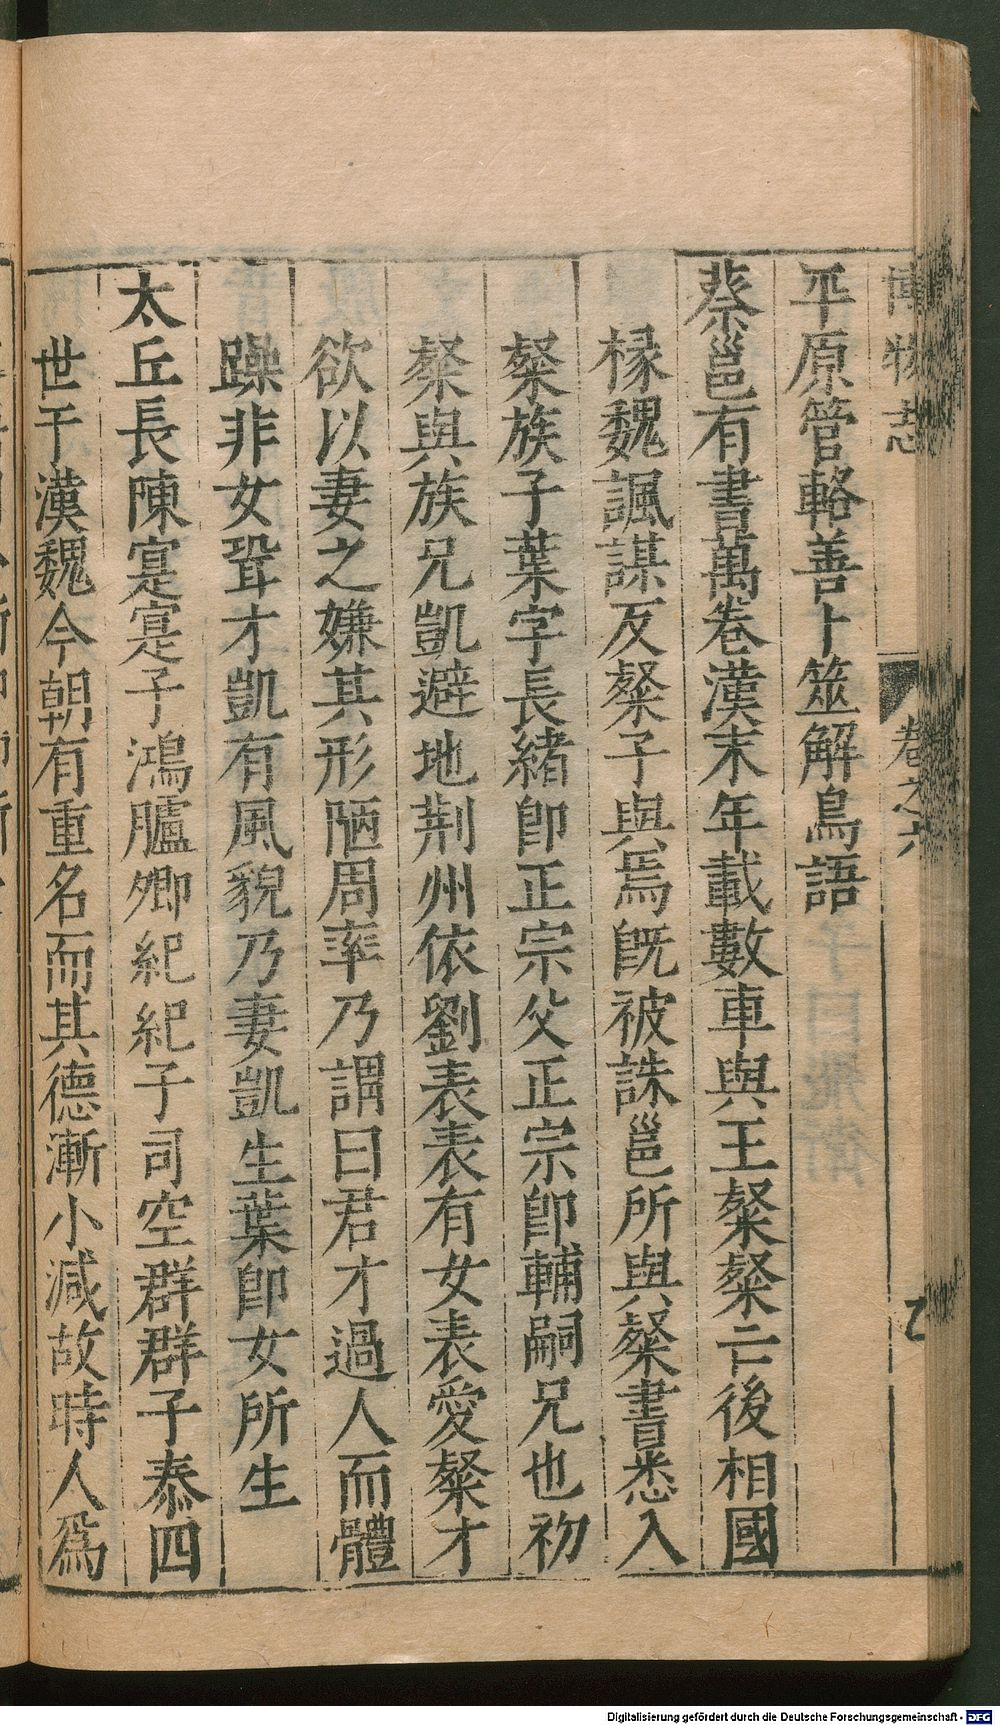 博物志 卷之六
平原管輅善卜筮解鳥語
蔡邕有書萬卷漢末年載數車與王粲粲亡後相國
椽魏諷謀反粲子與焉旣被誅邕所與粲書悉入
粲族子葉字長緒卽正宗父正宗卽輔嗣兄也初
粲與族兄凱避地荆州依劉表表有女表愛粲才
欲以妻之嫌其形陋周率乃謂曰君才過人而體
躁非女聓才凱有風貌乃妻凱生葉卽女所生
太丘長陳寔寔子鴻臚卿紀紀子司空群群子泰四
世于漢魏今朝有重名而其德漸小減故時人爲
Digitalisierung gefördert durch die Deutsche Forschungsgemeinschaft - DFG